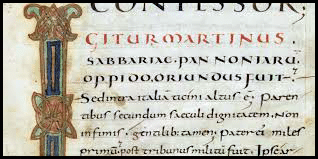 CONFESSOR
IGITUR MARTINUS
SABBARIAE·PANNONIARU
OPPIDO·ORIUNDUS FUIT·
Sed intra italiã ticini altus ẽ Paren
tibus secundum saeculi dignitatem· Non
infimis· gentilib; tamen· pater ei miles
primũ· post tribunus militũ fuit· Ipse ar